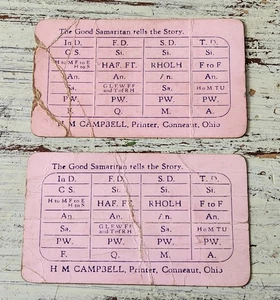 The Good Samaritan tells the Story.
In D. F. D. S. D. T. D.
C S. Si. Si. Si.
HAF. FT. RHOLH F to F
An. An. An. An.
Sa. GLFWFF and TofRH Sa. HoM TU
PW. PW. PW. PW.
F. Q. M. A.
H M CAMPBELL, Printer, Conneaut, Ohio
The Good Samaritan tells the Story.
In D. F. D. S. D. T. D.
C S. Si. Si. Si.
HAF. FT. RHOLH F to F
An. An. An. An.
Sa. GLFWFF and TofRH Sa. HoM TU
PW. PW. PW. PW.
F. Q. M. A.
H M CAMPBELL, Printer, Conneaut, Ohio